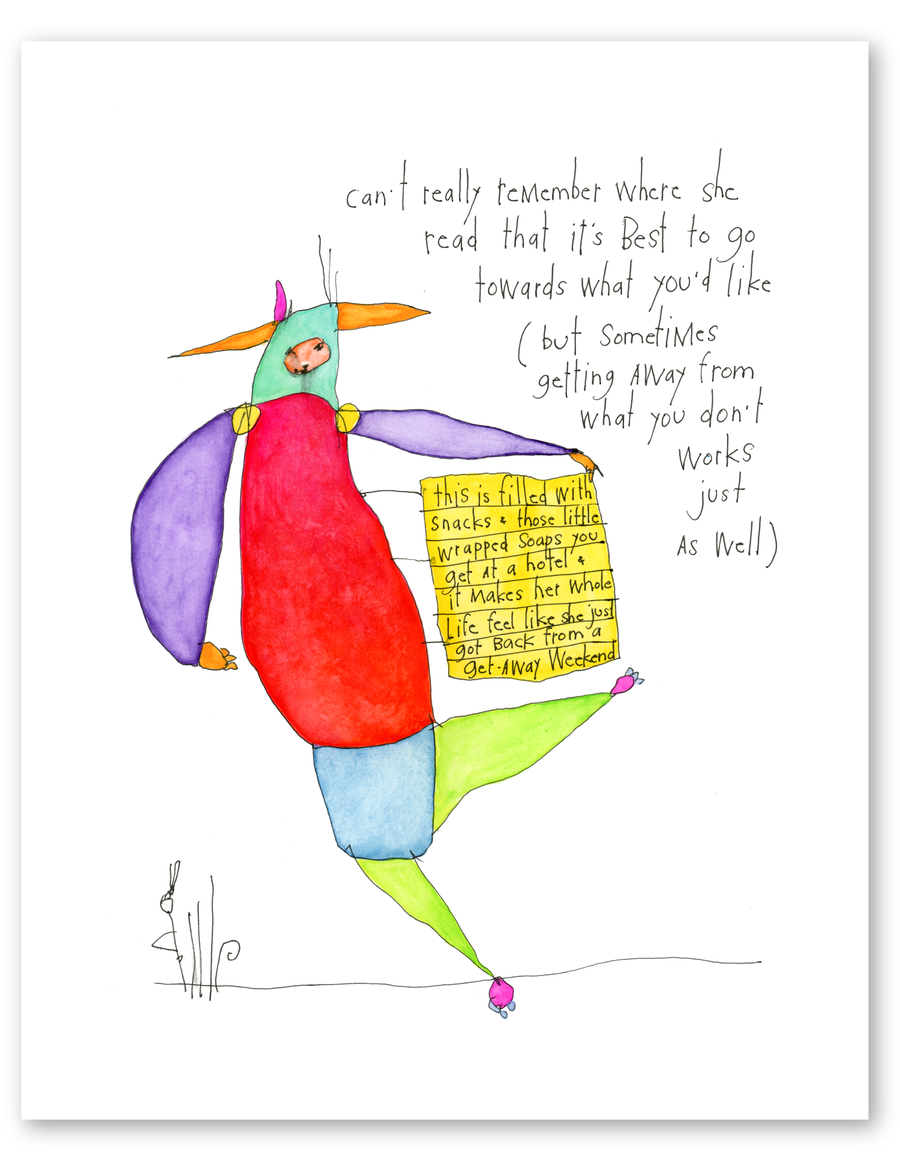 can't really remember where she
read that it's Best to go
towards what you'd like
(but sometimes
getting AWay from
what you don't
works
just
As Well)
this is filled with
snacks & those little
wrapped soaps you
get At a hotel &
it Makes her whole
Life feel like she just
got Back from a
get-AWay Weekend